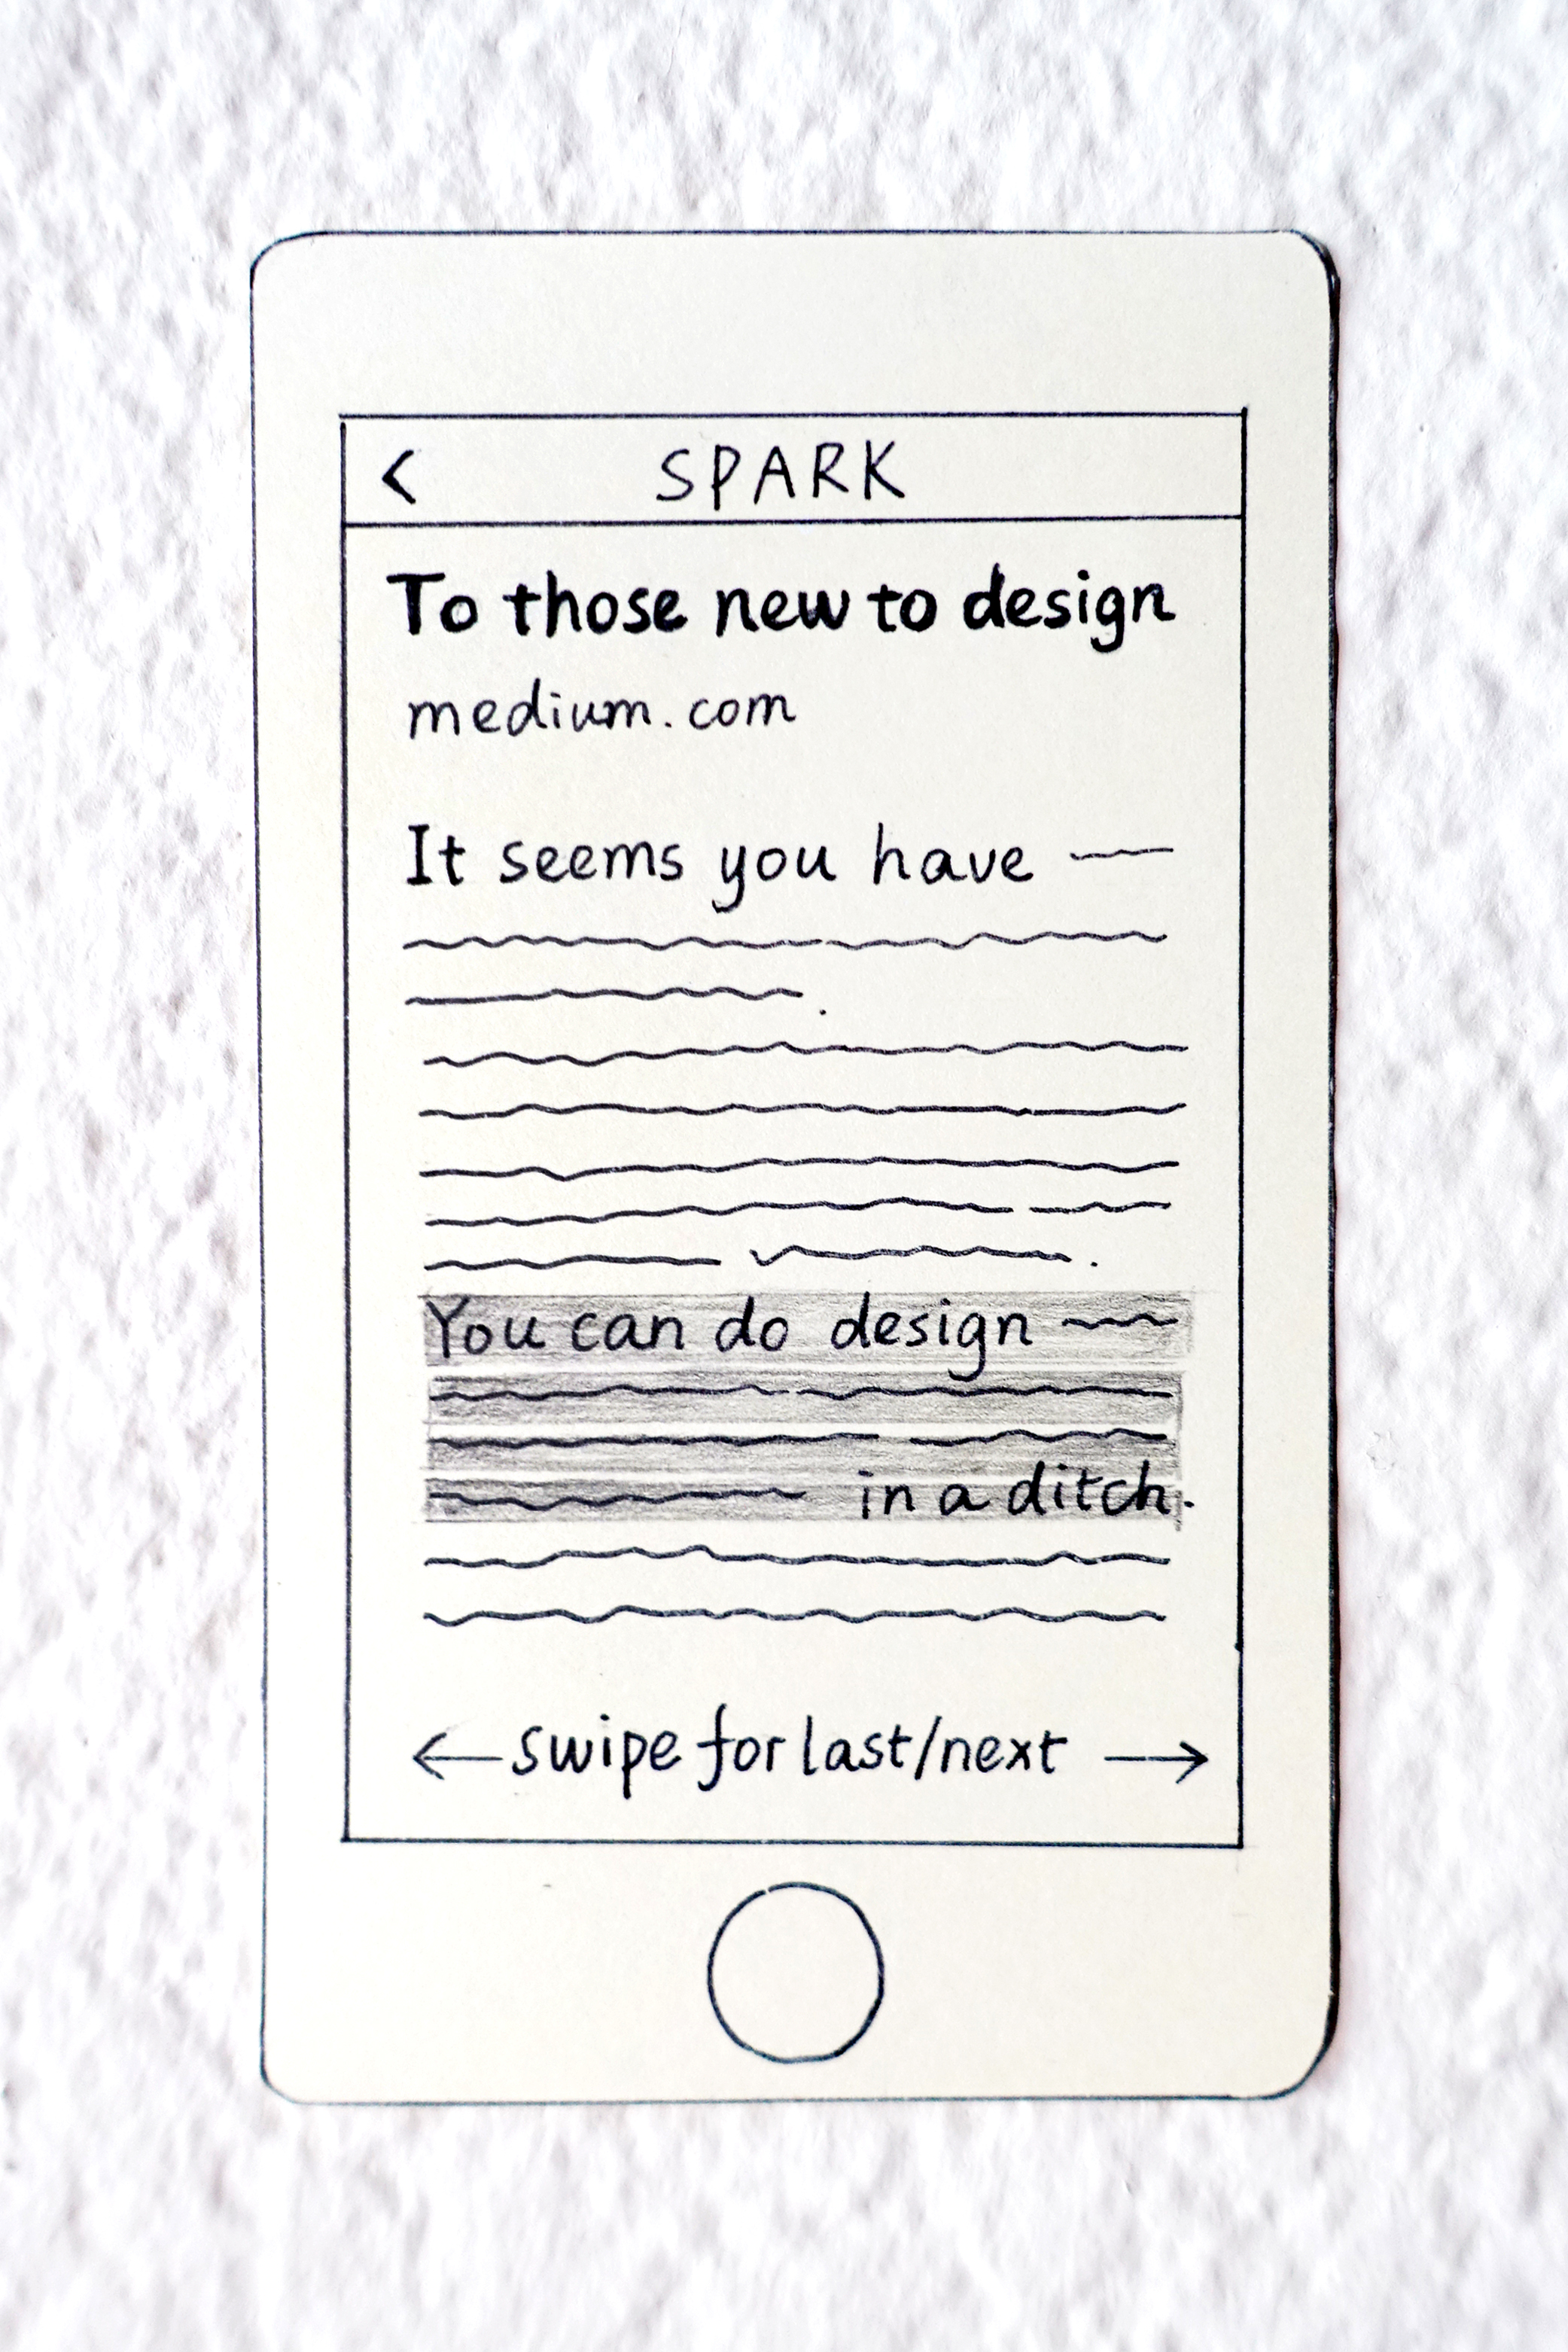 < SPARK
To those new to design
medium.com
It seems you have
You can do design
in a ditch.
← swipe for last/next →